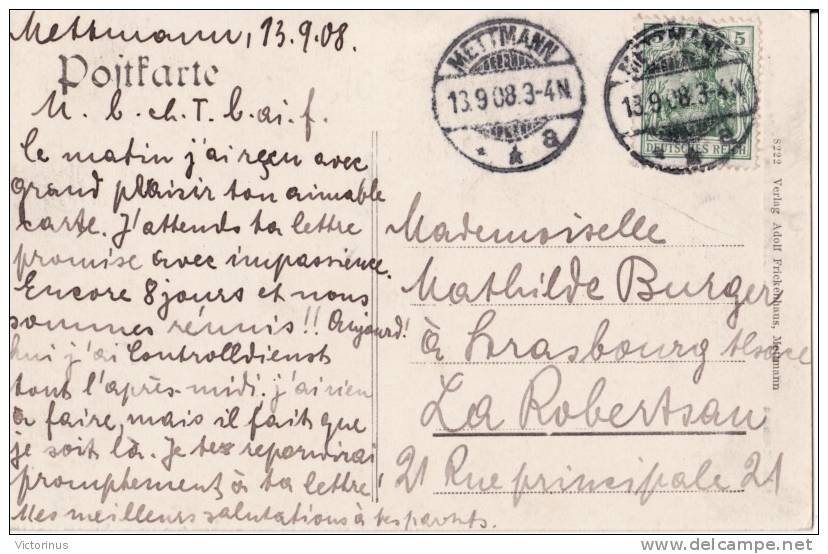 Mettmann, 13.9.08.
Postkarte
M. b. ch. T. b. a. i. f.
Ce matin j'ai reçu avec
grand plaisir ton aimable
carte. J'attends ta lettre
promise avec impassience.
Encore 8 jours et nous
sommes réunis!! Aujourd'
hui j'ai Controlldienst
tout l'après-midi. j'ai rien
à faire, mais il fait que
je soit là. Je te repondrai
promptement à ta lettre!
Mes meilleurs salutations à tes parents.
METTMANN
13.9.08.3-4N
a
METTMANN
13.9.08.3-4N
a
5
DEUTSCHES REICH
Mademoiselle
Mathilde Burger
à Strasbourg Alsace
La Robertsau
21 Rue principale 21
8222 Verlag Adolf Frickenhaus, Mettmann
Victorinus
delcampe.net